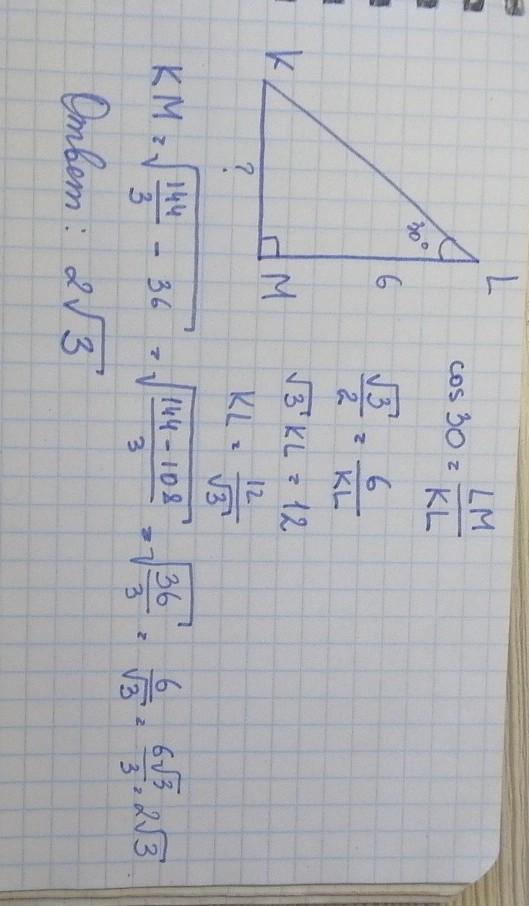 L
30°
6
K
M
?
cos 30 = LM/KL
√3/2 = 6/KL
√3 KL = 12
KL = 12/√3
KM = √(144/3 - 36) = √((144-108)/3) = √(36/3) = 6/√3 = 6√3/3 = 2√3
Ответ: 2√3